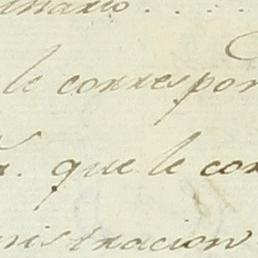 le correspon
que le cor
nistracion